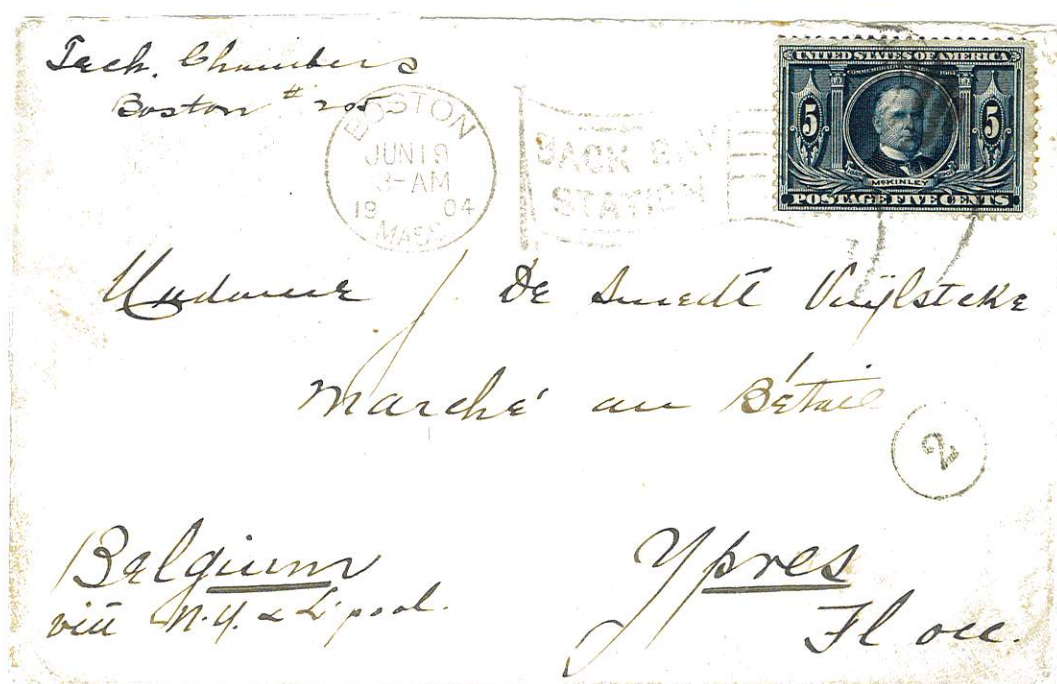 Tech. Chambers
Boston # 205
BOSTON
JUN 19
3-AM
19 04
MASS.
BACK BAY
STATION
UNITED STATES OF AMERICA
COMMEMORATIVE SERIES 1904
5 5
McKINLEY
POSTAGE FIVE CENTS
Madame J. De Smedt Vuÿlsteke
Marché au Bétail
2
Belgium
viâ N.Y. & L'pool.
Ypres
Fl occ.